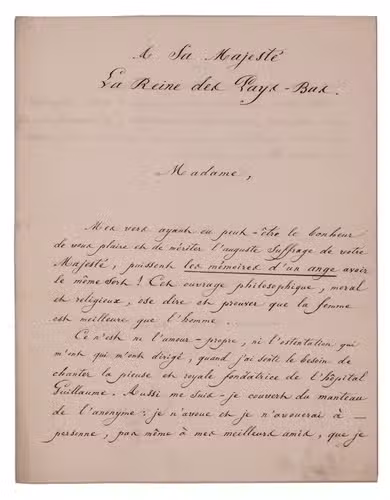 A Sa Majesté
La Reine des Pays-Bas.
Madame,
Mes vers ayant eu peut-être le bonheur
de vous plaire et de mériter l'auguste suffrage de votre
Majesté, puissent les mémoires d'un ange avoir
le même sort! Cet ouvrage philosophique, moral
et religieux, ose dire et prouver que la femme
est meilleure que l'homme.
Ce n'est ni l'amour-propre, ni l'ostentation qui
m'ont qui m'ont dirigé, quand j'ai senti le besoin de
chanter la pieuse et royale fondatrice de l'hôpital
Guillaume. Aussi me suis-je couvert du manteau
de l'anonyme: je n'avoue et je n'avouerai à
personne, pas même à mes meilleurs amis, que je